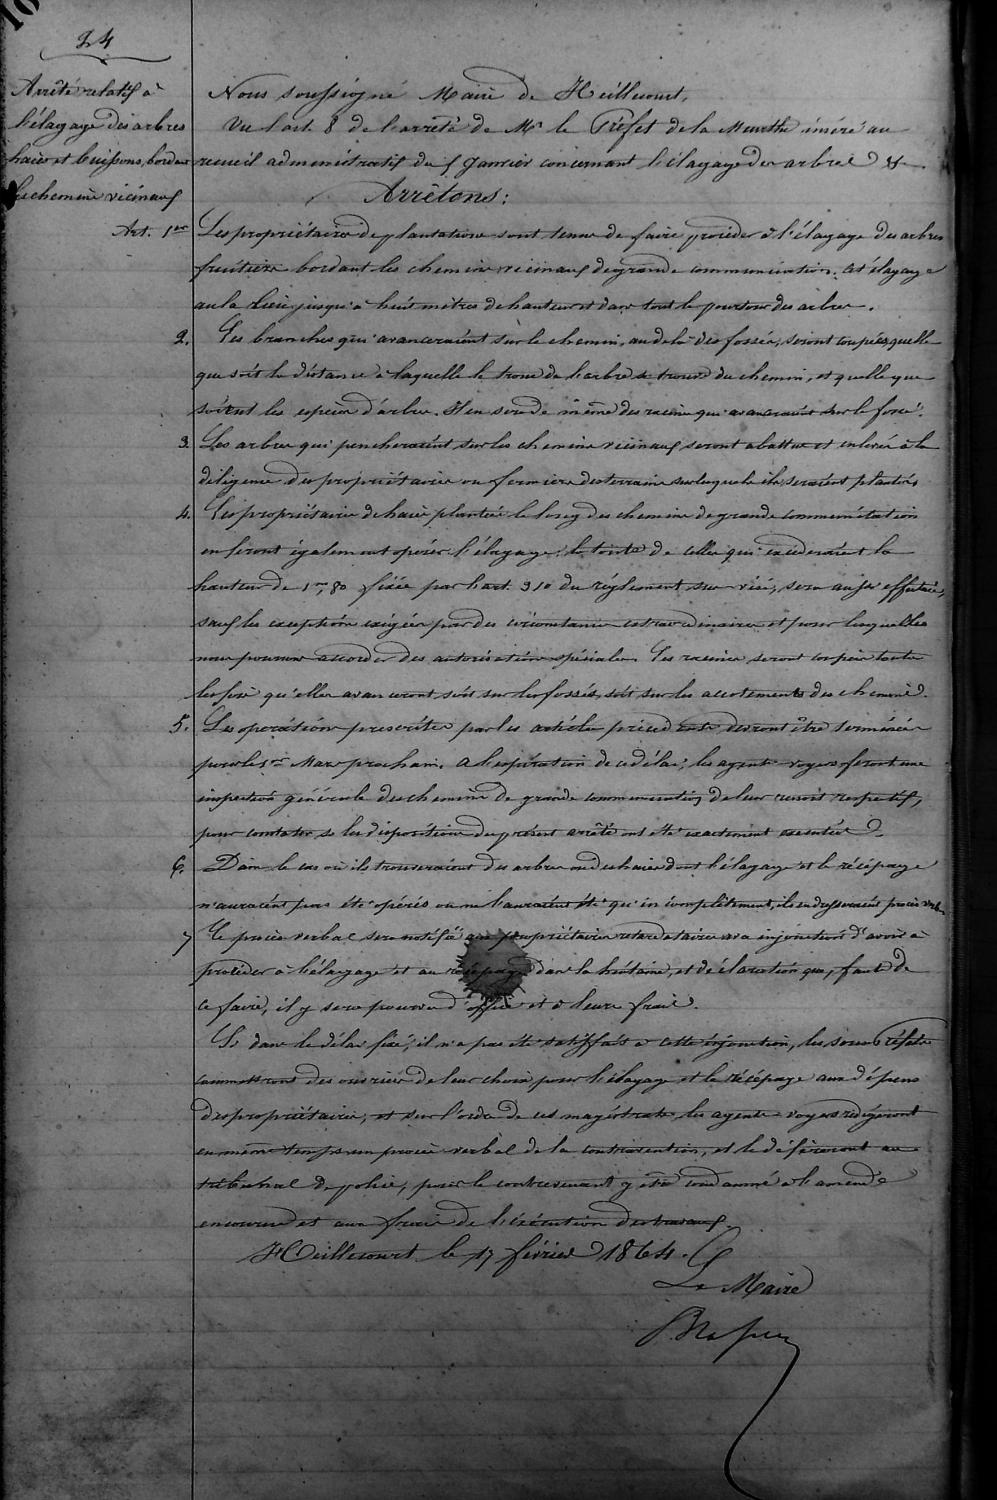 24
Arrêté relatif à
l'élagage des arbres
haies et buissons, bordant
les chemins vicinaux
Nous soussigné Maire de Heillecourt,
Vu l'art. 8 de l'arrêté de Mr le Préfet de la Meurthe inséré au
recueil administratif du 5 Janvier concernant l'élagage des arbres &
Arrêtons:
Art. 1er Les propriétaires de plantations sont tenus de faire procéder à l'élagage des arbres
fruitiers bordant les chemins vicinaux de grande communication. Cet élagage
aura lieu jusqu'à huit mètres de hauteur et dans tout le pourtour des arbres.
2. Les branches qui avanceraient sur le chemin, au delà des fossés, seront coupées quelle
que soit la distance à laquelle le tronc de l'arbre se trouve du chemin, et quelle que
soient les espèces d'arbres. Il en sera de même des racines qui avanceraient sur le fossé.
3. Les arbres qui pencheraient sur les chemins vicinaux seront abattus et enlevés à la
diligence des propriétaires ou fermiers des terrains sur lesquels ils seraient plantés.
4. Les propriétaires de haies plantées le long des chemins de grande communication
en feront également opérer l'élagage; la tonte de celles qui excéderaient la
hauteur de 1m,80 fixée par l'art. 310 du règlement sus visé, sera aussi effectuée,
sauf les exceptions exigées par des circonstances extraordinaires et pour lesquelles
nous pourrons accorder des autorisations spéciales. Les racines seront coupées toutes
les fois qu'elles avanceront, soit sur les fossés, soit sur les accotements des chemins.
5. Les opérations prescrites par les articles précédents devront être terminées
pour le 1er Mars prochain. A l'expiration de ce délai, les agents-voyers feront une
inspection générale des chemins de grande communication de leur ressort respectif,
pour constater, si les dispositions du présent arrêté ont été exactement exécutées.
6. Dans le cas où ils trouveraient des arbres ou des haies dont l'élagage et le récépage
n'auraient pas été opérés ou ne l'auraient été qu'incomplètement, ils en dresseraient procès verbal.
7 Ce procès verbal sera notifié aux propriétaires retardataires avec injonction d'avoir à
procéder à l'élagage et au récépage dans la huitaine, et déclaration que, faute de
ce faire, il y sera pourvu d'office et à leurs frais.
Si dans le délai fixé, il n'a pas été satisfait à cette injonction, les sous Préfets
commettront des ouvriers de leur choix pour l'élagage et le récépage aux dépens
des propriétaires, et sur l'ordre de ces magistrats, les agents-voyers rédigeront
en même temps un procès verbal de la contravention, et le déféreront au
tribunal de police, pour le contrevenant y être condamné à l'amende
encourue et aux frais de l'exécution des travaux.
Heillecourt le 17 février 1864.
Le Maire